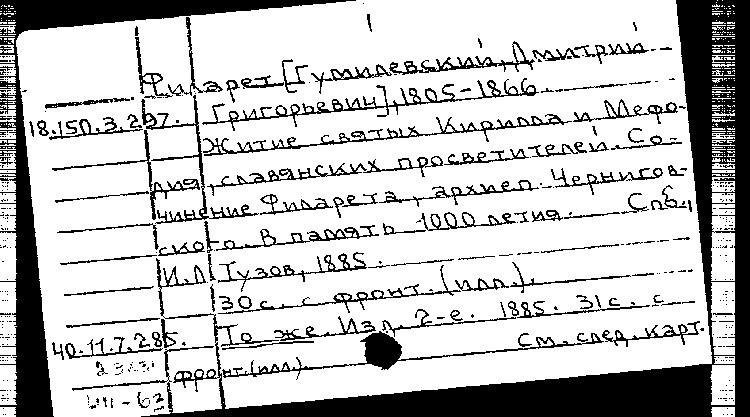 1
Филарет [Гумилевский, Дмитрий
18.150.3.297. Григорьевич], 1805-1866
Житие святых Кирилла и Мефо-
дия, славянских просветителей. Со-
чинение Филарета, архиеп. Чернигов-
ского. В память 1000 летия. Спб.,
И.Л. Тузов, 1885.
30 с. с фронт. (илл.).
40.11.7.285. То же. Изд. 2-е. 1885. 31 с. с
фронт. (илл.). См. след. карт.